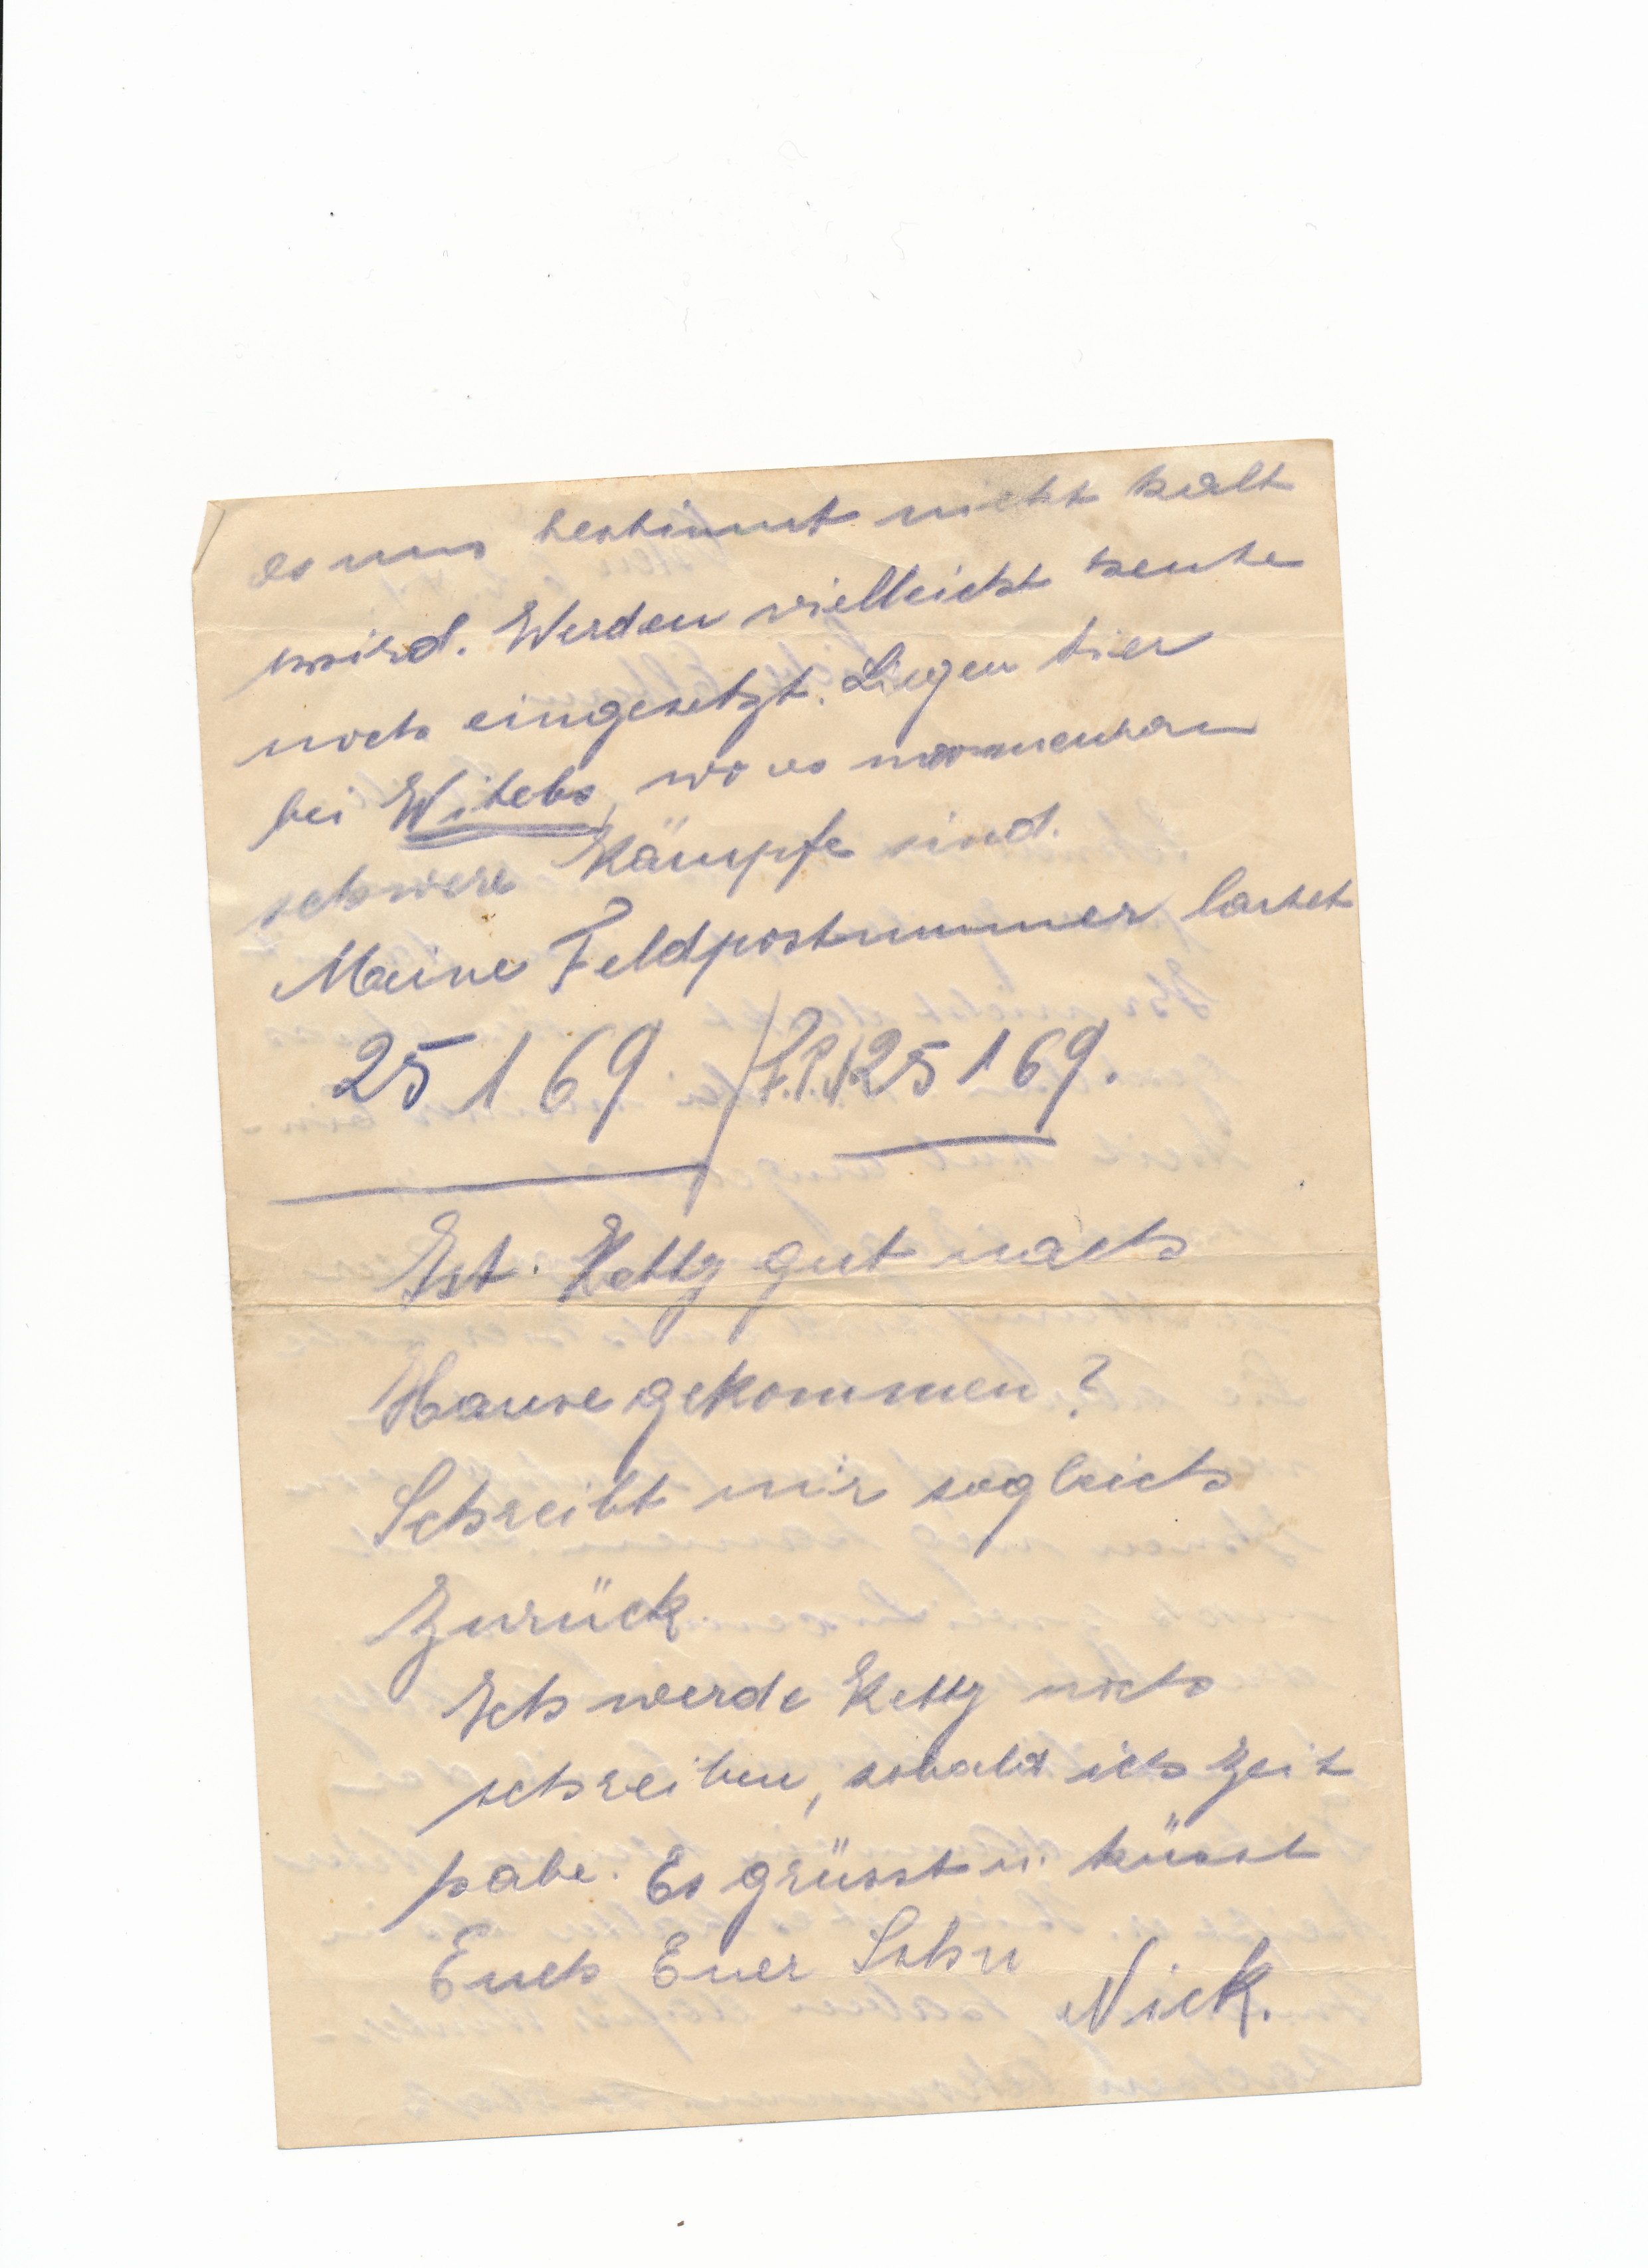 es uns bestimmt nicht kalt
wird. Werden vielleicht heute
noch eingesetzt. Liegen hier
bei Witebs, wo es momentan
schwere Kämpfe sind.
Meine Feldpostnummer lautet
25169 / F.P.N 25169.
Ist Ketty gut nach
Hause gekommen?
Schreibt mir sogleich
Zurück
Ich werde Ketty noch
schreiben, sobald ich Zeit
habe. Es grüsst u. küsst
Euch Euer Sohn
Nick.